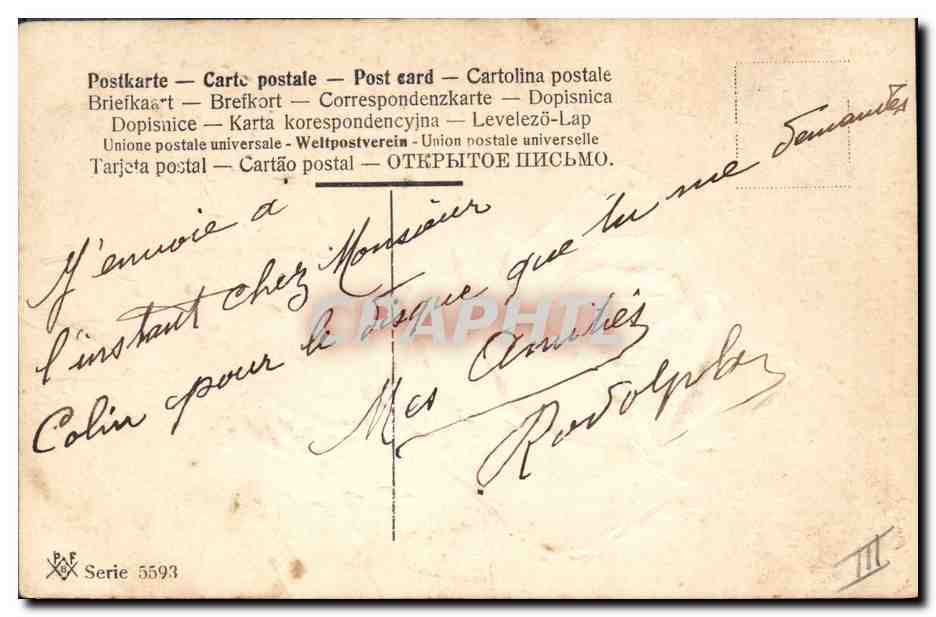 Postkarte — Carte postale — Post card — Cartolina postale
Briefkaart — Brefkort — Correspondenzkarte — Dopisnica
Dopisnice — Karta korespondencyjna — Levelező-Lap
Unione postale universale - Weltpostverein - Union postale universelle
Tarjeta postal — Cartão postal — ОТКРЫТОЕ ПИСЬМО.
J'envoie a
l'instant chez Monsieur
Colin pour le disque que tu me demandes
Mes Amitiés
Rodolphe
CPAPHIL
P. F.
B
Serie 5593
III